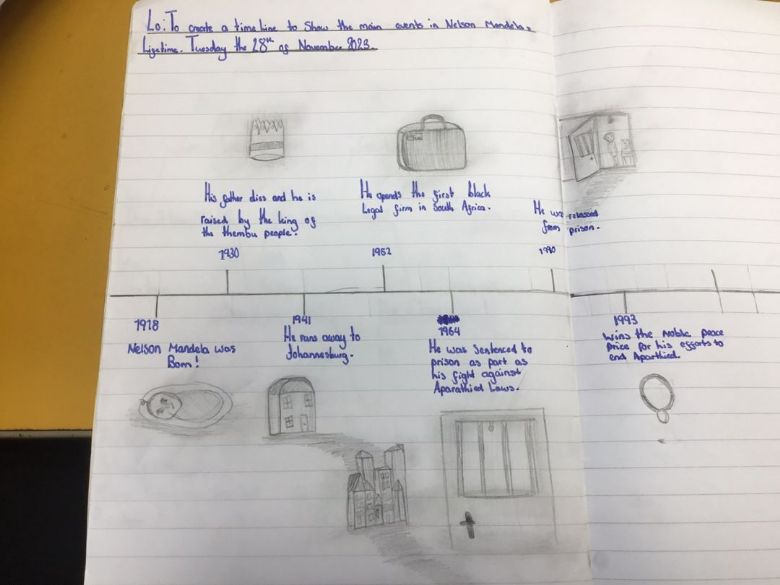 Lo: To create a time line to show the main events in Nelson Mandela's
Lifetime. Tuesday the 28th of November 2023.
His father dies and he is
raised by the king of
the thembu people.
1930
He opends the first black
Legal firm in South Africa.
1952
He was released
from prison.
1990
1918
Nelson Mandela was
Born!
1941
He runs away to
Johannesburg.
1964
He was sentenced to
prison as part as
his fight against
Aparathied Laws.
1993
Wins the Noble peace
Price for his efforts to
end Aparthied.